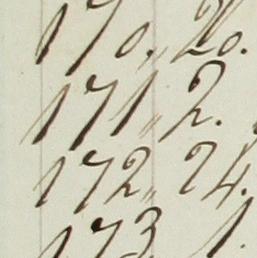 170. „ 20.
171 „ 2.
172 „ 24.
173 1.